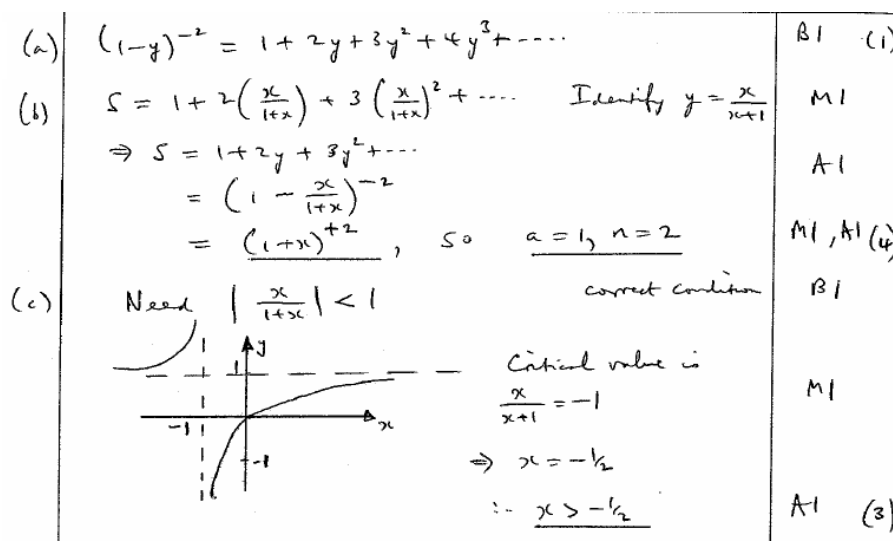 (a) (1-y)^{-2} = 1 + 2y + 3y^2 + 4y^3 + ---- B1 (1)
(b) S = 1 + 2(x/(1+x)) + 3(x/(1+x))^2 + ---- Identify y = x/(x+1) M1
⇒ S = 1 + 2y + 3y^2 + ---
A1
= (1 - x/(1+x))^{-2}
= (1+x)^{+2}, so a = 1, n = 2 M1, A1 (4)
(c) Need |x/(1+x)| < 1 correct condition B1
y
1
Critical value is
x/(x+1) = -1 M1
-1 x
-1
⇒ x = -1/2
∴ x > -1/2 A1 (3)